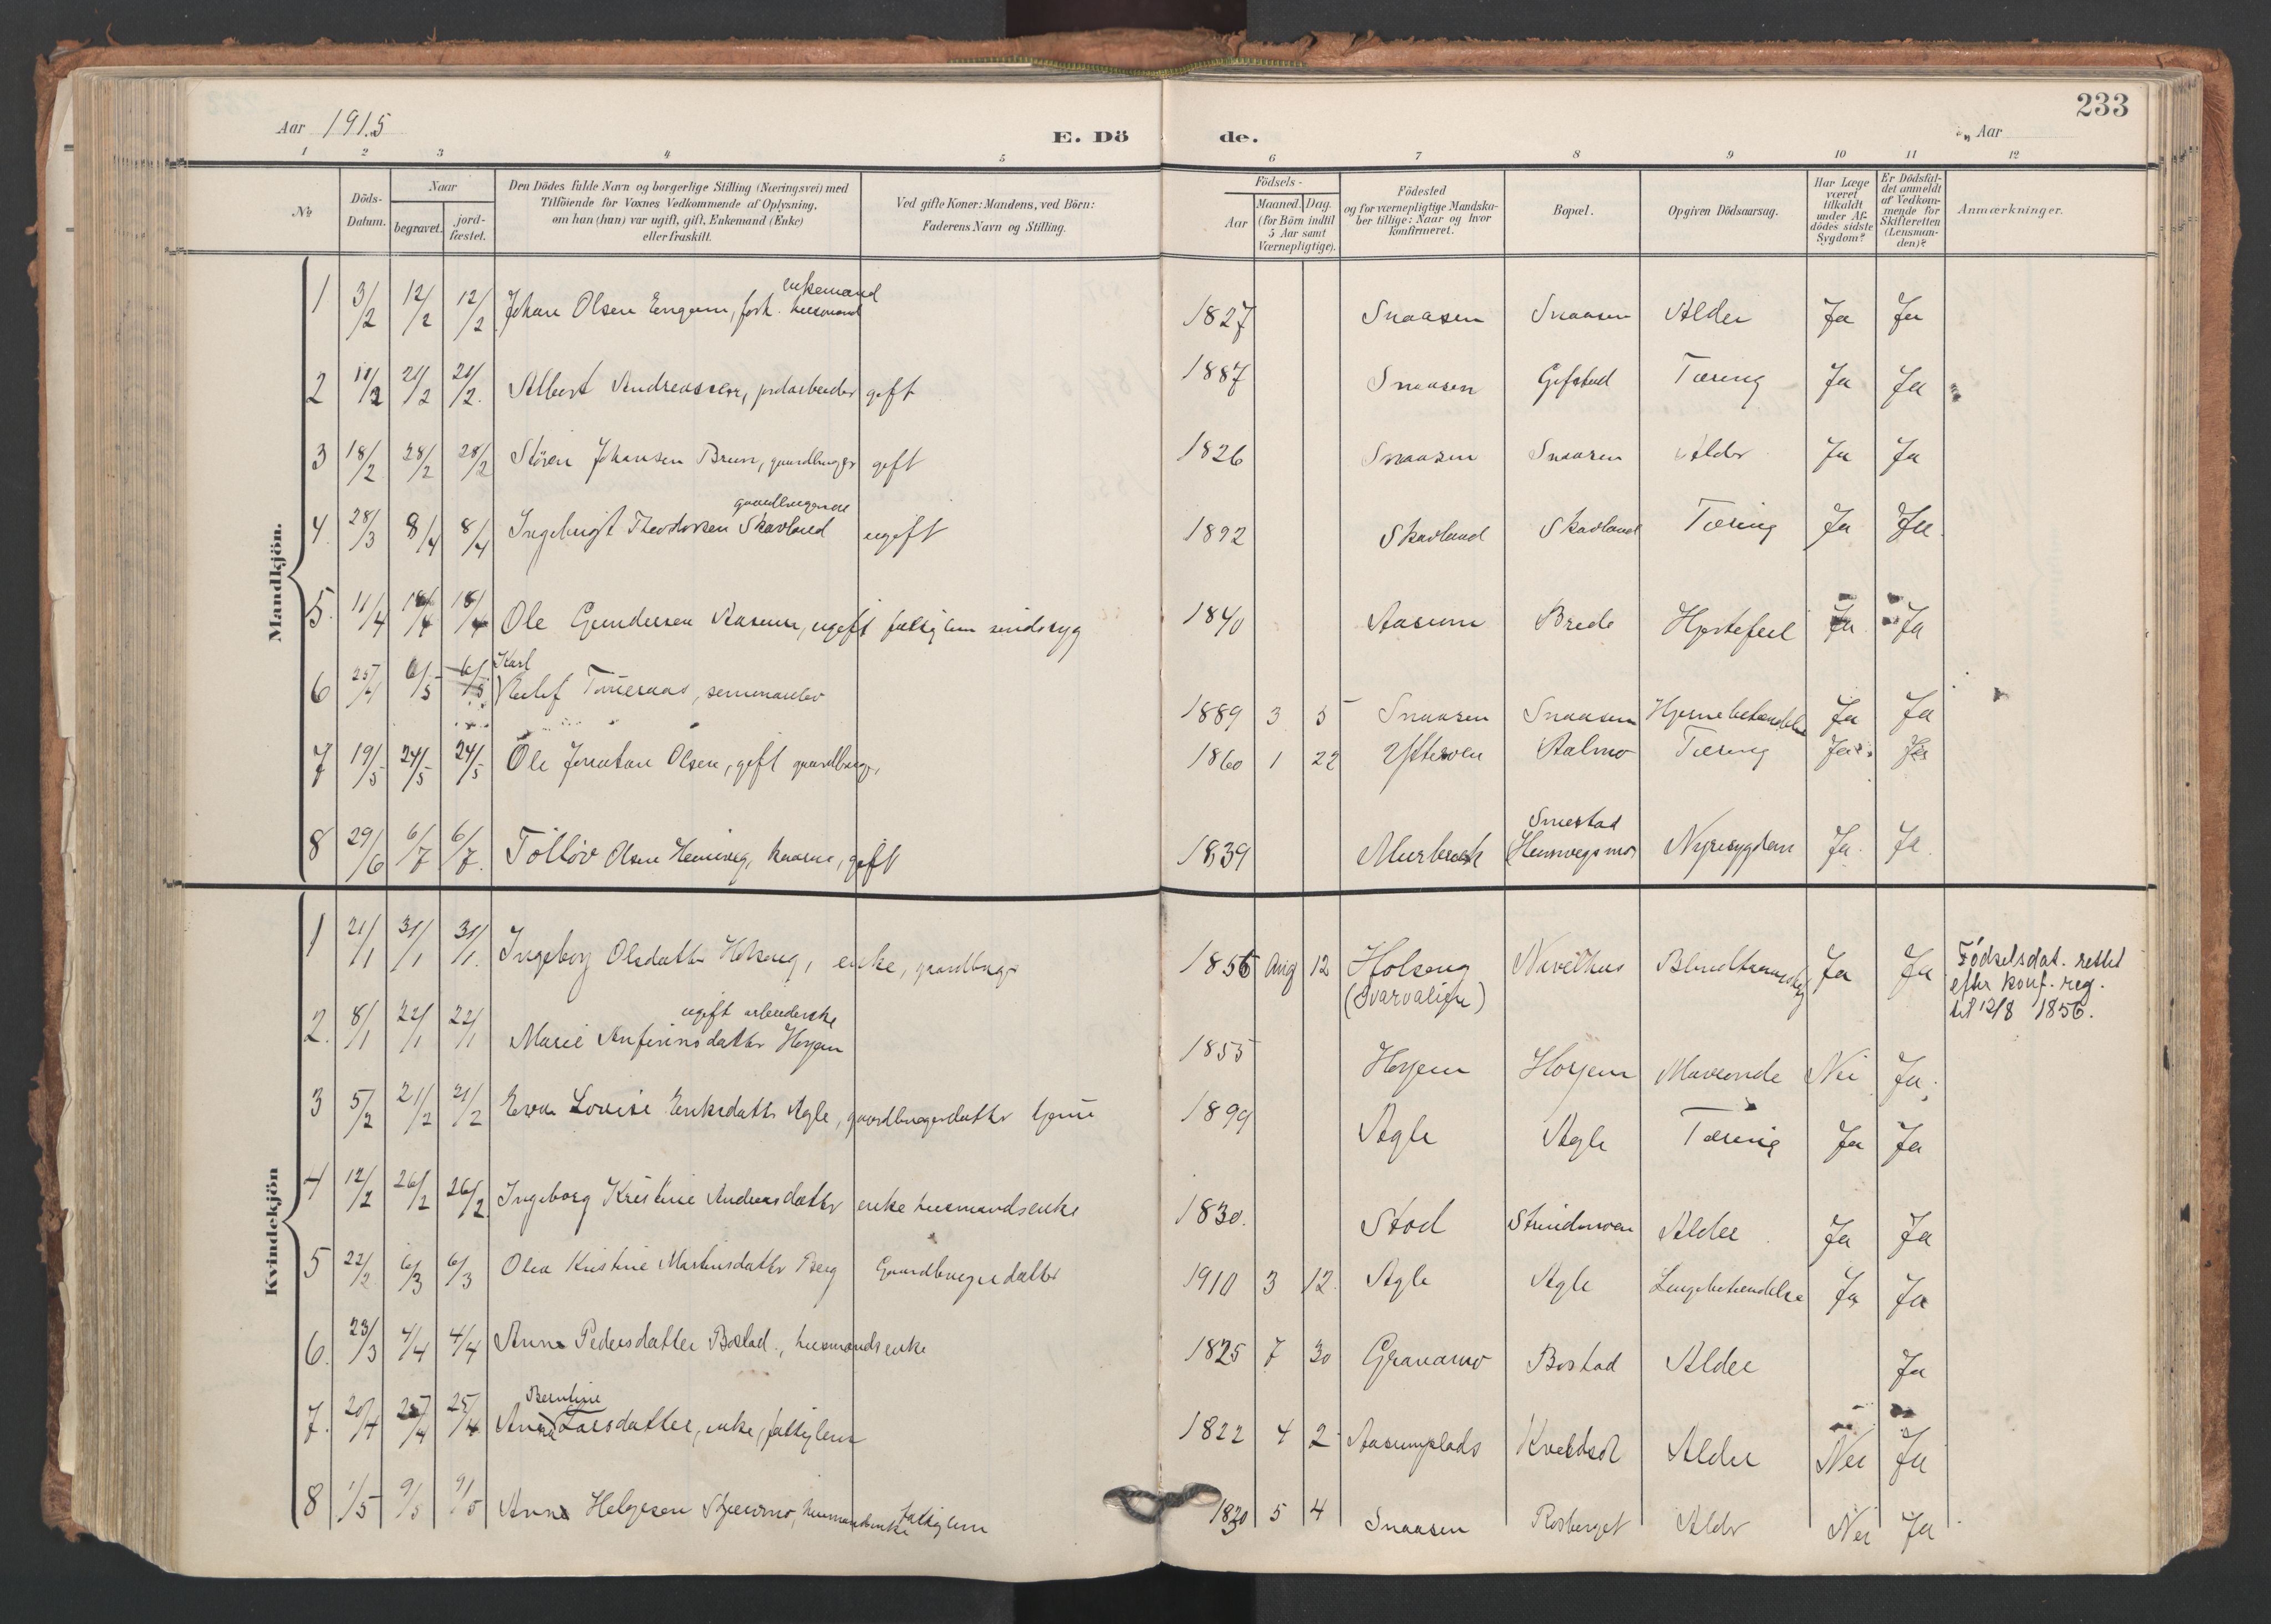 233
Aar 1915
E. Döde.
Aar
1 2 3 4 5 6 7 8 9 10 11 12
No
Döds-Datum.
Naar
begravet.
jord-fæstet.
Den Dödes fulde Navn og borgerlige Stilling (Næringsvei) med
Tilföiende for Voxnes Vedkommende af Oplysning,
om han (hun) var ugift, gift, Enkemand (Enke)
eller fraskilt.
Ved gifte Koner: Mandens, ved Börn:
Faderens Navn og Stilling.
Födsels-
Aar
Maaned. Dag.
(for Börn indtil
5 Aar samt
Værnepligtige).
Födested
og for værnepligtige Mandska-
ber tillige: Naar og hvor
konfirmeret.
Bopæl.
Opgiven Dödsaarsag.
Har Læge
været
tilkaldt
under Af-
dödes sidste
Sygdom?
Er Dödsfal-
det anmeldt
af Vedkom-
mende for
Skifteretten
(Lensman-
den)?
Anmærkninger.
Mandkjön.
enkemand
1 3/2 12/2 12/2 Johan Olsen Engum, forh. husmand 1827 Snaasen Snaasen Alder Ja Ja
2 11/2 21/2 21/2. Albert Andreassen, jordarbeider gift 1887 Snaasen Gifstad Tæring Ja Ja
3 18/2 28/2 28/2 Sören Johansen Brun, gaardbruger gift 1826 Snaasen Snaasen Alder Ja Ja
gaardbrugersøn
4. 28/3 8/4 8/4 Ingebrigt Theodorsen Skavland ugift 1892 Skavland Skavland Tæring Ja Ja
5. 11/4 18/4 18/4 Ole Gundersen Aasum, ugift fattiglem sindssyg 1840 Aasum Brede Hjertefeil Ja Ja
Karl
6 25/4 6/5 6/5 Tømmeraas, seminarelev 1889 3 5 Snaasen Snaasen Hjernebetændelse Ja Ja
7 19/5 24/5 24/5 Ole Jonatan Olsen, gift gaardbruger 1860 1 22 Aalmo Tæring Ja Ja
Smestad
8 29/6 6/7 6/7. Tölløv Olsen gift 1839 Nyresygdom Ja Ja
Kvindekjön
1 21/1 31/1 31/1. Ingeborg Olsdatter Holseng, enke, gaardbruger 1856 Aug 12 Holseng Ja Ja Födselsdat. rettet
(Svarvalign) efter konf. reg.
til 12/8 1856.
ugift arbeiderske
2. 8/1 22/1 22/1 Marie Anfinnsdatter Hojem 1855 Hojem Hojem Maveonde Nei Ja.
3 5/2 21/2 21/2 Eva Lovise Eriksdatter Agle, gaardbrugerdatter 1899 Agle Agle Tæring Ja Ja
4 12/2 26/2 26/2. Ingeborg Kristine Andreasdatter enke husmandsenke 1830. Stod Strindmoen Alder Ja Ja
5 22/2 6/3 6/3 Olea Kristine Martinsdatter Berg Gaardbrugerdatter 1910 3 12. Agle Agle Lungebetændelse Ja Ja
6. 23/3 4/4 4/4 Anna Pedersdatter Bostad., husmandsenke 1825 7 30 Granamo Bostad Alder Ja
Berntine
7. 20/4 25/4 25/4 Anna Larsdatter, enke, fattiglem 1822 4 2 Aasumplads Kveldsol Alder Nei Ja
8 1/5 9/5 9/5 Anna Helgesen husmandsenke fattiglem 1830 5 4 Snaasen Rosberget Alder Nei Ja